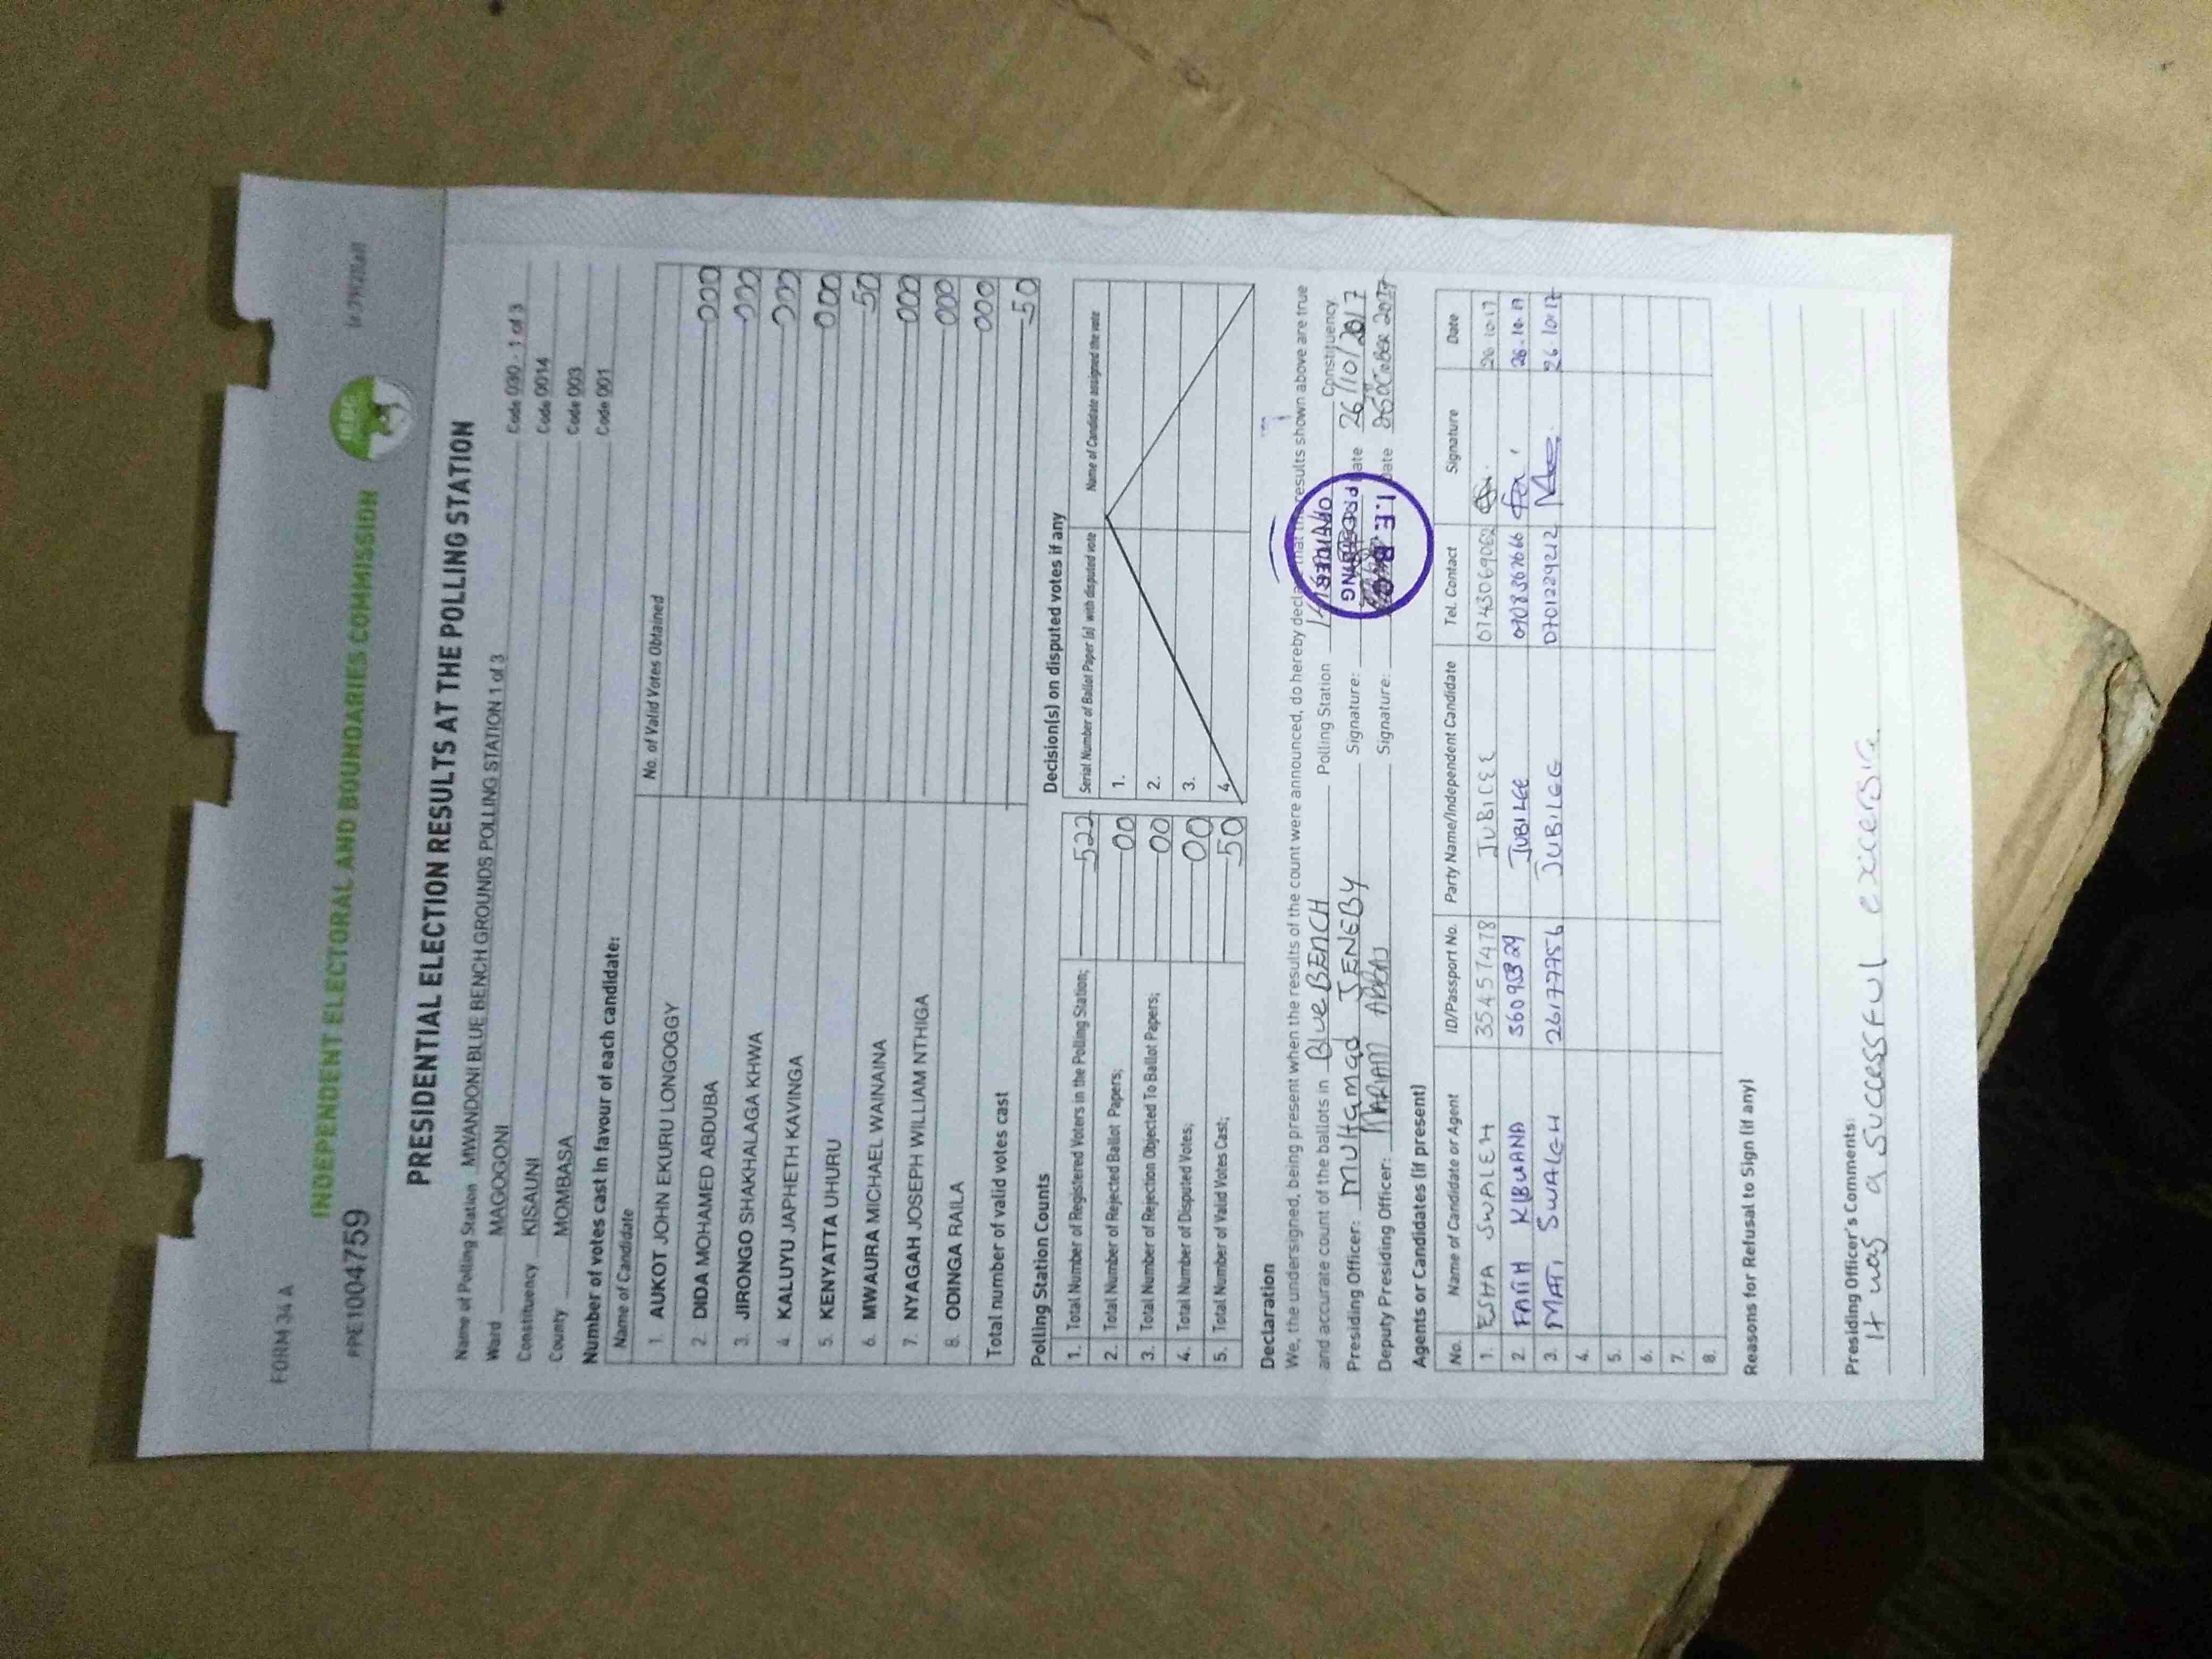 FORM 34 A
INDEPENDENT ELECTORAL AND BOUNDARIES COMMISSION
PPE1004759
PRESIDENTIAL ELECTION RESULTS AT THE POLLING STATION
Name of Polling Station MWANDONI BLUE BENCH GROUNDS POLLING STATION 1 of 3 Code 030 - 1 of 3
Ward MAGOGONI Code 0014
Constituency KISAUNI Code 003
County MOMBASA Code 001
Number of votes cast in favour of each candidate:
Name of Candidate No. of Valid Votes Obtained
1. AUKOT JOHN EKURU LONGOGGY 000
2. DIDA MOHAMED ABDUBA 000
3. JIRONGO SHAKHALAGA KHWA 000
4. KALUYU JAPHETH KAVINGA 000
5. KENYATTA UHURU 50
6. MWAURA MICHAEL WAINAINA 000
7. NYAGAH JOSEPH WILLIAM NTHIGA 000
8. ODINGA RAILA 000
Total number of valid votes cast 50
Polling Station Counts
1. Total Number of Registered Voters in the Polling Station; 522
2. Total Number of Rejected Ballot Papers; 00
3. Total Number of Rejection Objected To Ballot Papers; 00
4. Total Number of Disputed Votes; 00
5. Total Number of Valid Votes Cast; 50
Decision(s) on disputed votes if any
Serial Number of Ballot Paper (s) with disputed vote Name of Candidate assigned the vote
1.
2.
3.
4.
Declaration
We, the undersigned, being present when the results of the count were announced, do hereby declare that the results shown above are true
and accurate count of the ballots in Blue BENCH Polling Station Constituency
Presiding Officer: Multamad JENEBY Signature: Date 26/10/2017
Deputy Presiding Officer: MARIAM ABBAS Signature: Date 26 OCTOBER 2017
PRESIDING
OFFICER
I.E.B.C
Agents or Candidates (if present)
No. Name of Candidate or Agent ID/Passport No. Party Name/Independent Candidate Tel. Contact Signature Date
1. ESHA SWALEH 35457478 JUBILEE 0743069062 26.10.17
2. FAITH KIBWANA JUBILEE 26.10.17
3. MATI SWALEH 26177756 JUBILEE 0701229212 26.10.17
4.
5.
6.
7.
8.
Reasons for Refusal to Sign (if any)
Presiding Officer's Comments:
It was a successful excersice